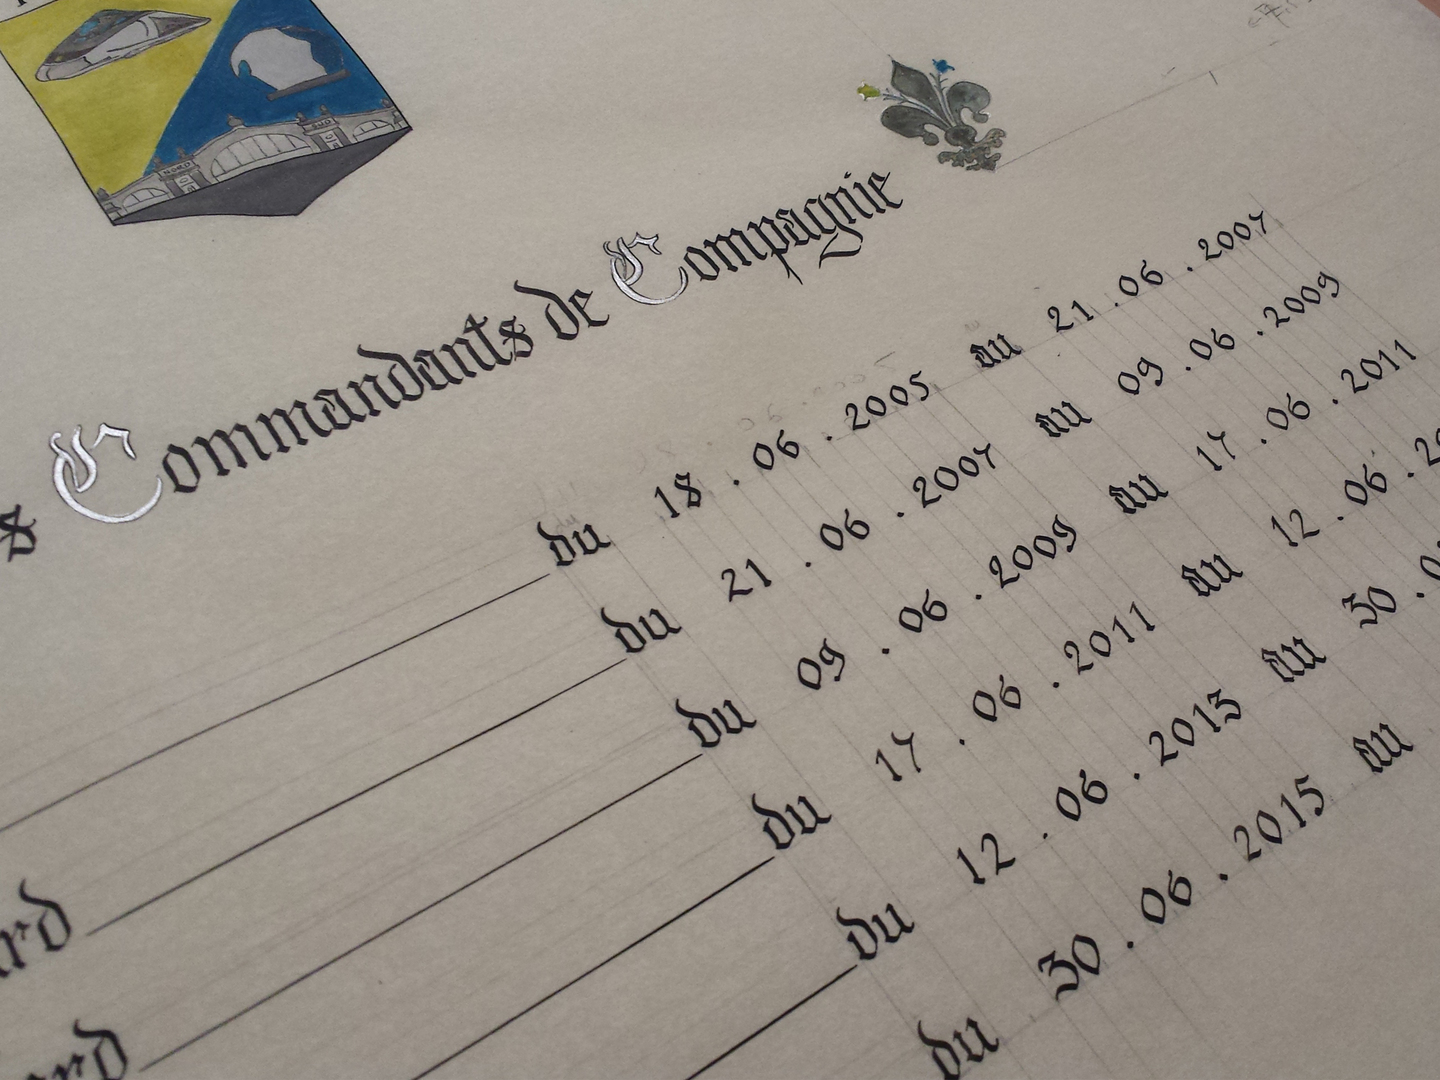 NORD SUD
s Commandants de Compagnie
du 18 . 06 . 2005 au 21 . 06 . 2007
du 21 . 06 . 2007 au 09 . 06 . 2009
du 09 . 06 . 2009 au 17 . 06 . 2011
ard du 17 . 06 . 2011 au 12 . 06 . 20
ard du 12 . 06 . 2013 au 30 . 0
du 30 . 06 . 2015 au